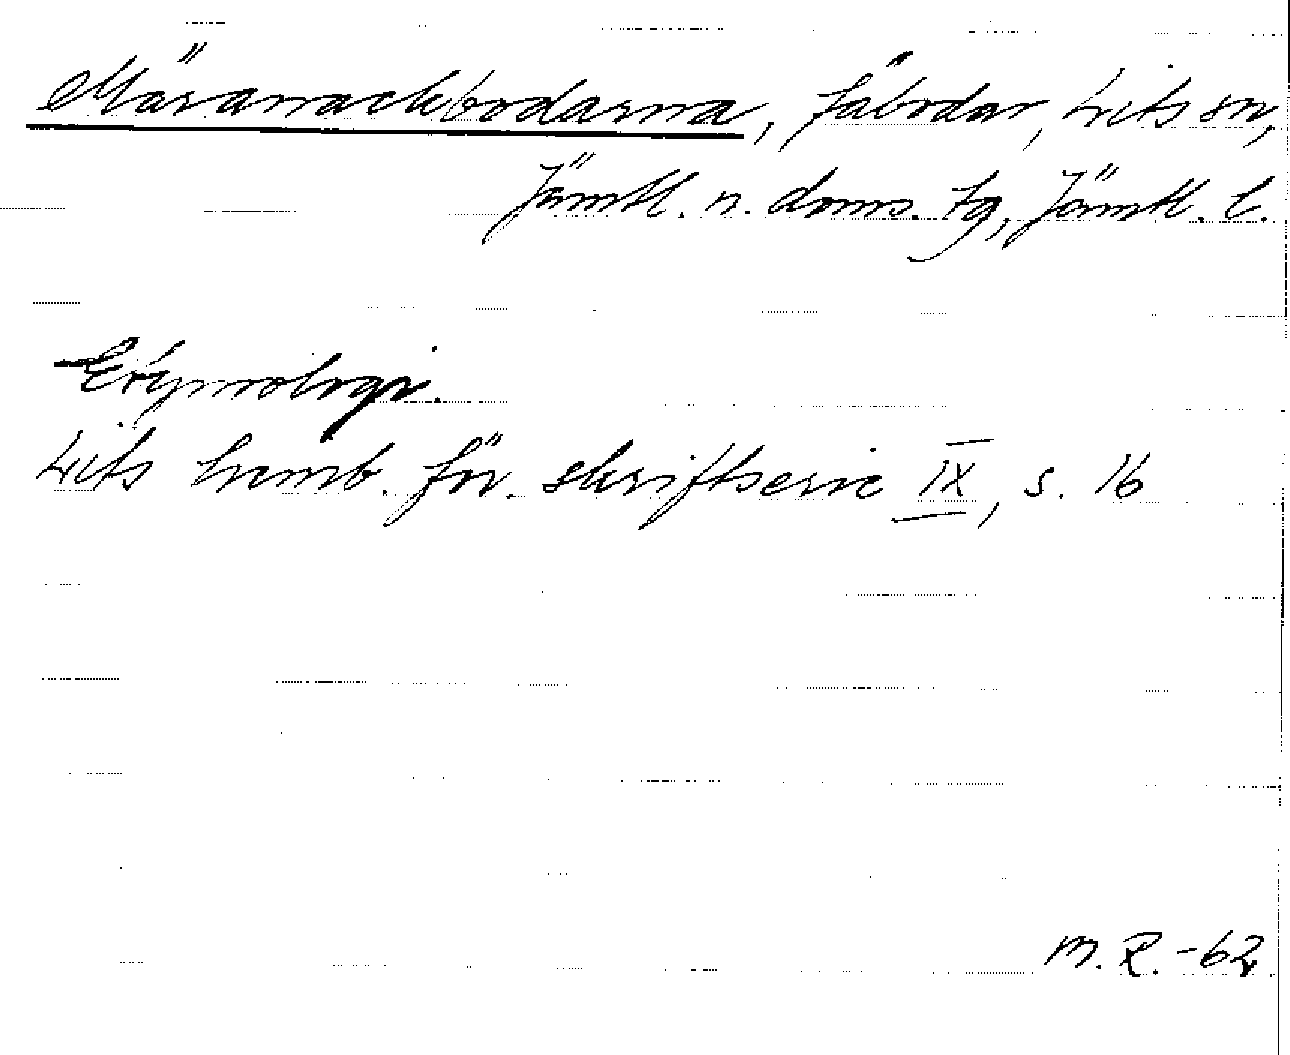 Märanackbodarna, fäbodar, Lits sn,
Jämtl. n. doms. tg, Jämtl. l.
Etymologi.
Lits hemb. för. skriftserie IX, s. 16
M.R.-62